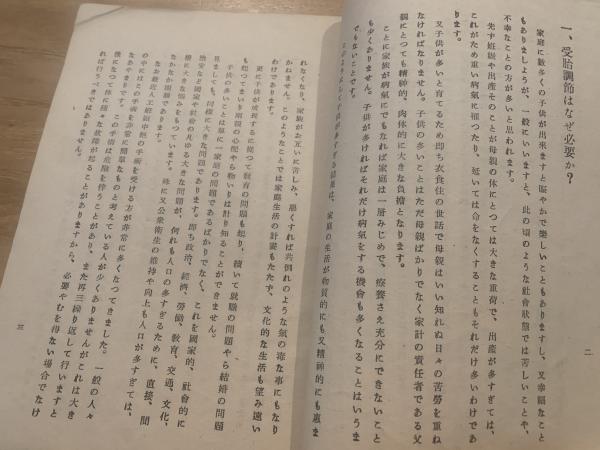 一、受胎調節はなぜ必要か？
家庭に数多くの子供が出来ますと賑やかで楽しいこともありますし、又幸福なこと
もありましようが、一般にいいますと、此の頃のような社會狀態では苦しいことや、
不幸なことの方が多いと思われます。
先ず妊娠や出產そのことが母親の体にとつては大きな重荷で、出產が多すぎては、
これがため重い病氣に罹つたり、延いては命をなくすることもそれだけ多いわけであ
ります。
又子供が多いと育てるため卽ち衣食住の世話で母親はいい知れぬ日々の苦勞を重ね
なければなりません。子供の多いことはただ母親ばかりでなく家計の責任者である父
親にとつても精神的、肉体的に大きな負擔となります。
ことに家族が病氣にでもなれば家庭は一層みじめで、療養さえ充分にできないこと
も少くありません。子供が多ければそれだけ病氣をする機會も多くなることはいうま
でもないことです。
このようにして子供が多すぎる結果は、家庭の生活が物質的にも又精神的にも惠ま
二
れなくなり、家族がお互いに苦しみ、悪くすれば共倒れのような氣の毒な事にもなり
かねません。このようなことでは家庭生活の計畫もたたず、文化的な生活も望み遠い
わけであります。
更に子供が成長するに從つて教育の問題も起り、續いて就職の問題やら結婚の問題
も起つてまいり兩親の心配やら物いりは計り知ることができません。
子供の多いことは單に一家庭の問題であるばかりでなく、これを國家的、社會的に
見ましても、同樣に大きな問題であります。卽ち政治、經濟、勞働、教育、交通、文化、
治安など國家や社會のあらゆる大きな問題が、何れも人口の多すぎるために、直接、間
接に大きな惱みをもつています。殊に又公衆衛生の維持や向上も人口が多すぎては、
なかなか困難であります。
なお最近人工妊娠中絶の手術を受ける方が非常に多くなつてきました。一般の人々
の中にはこの手術を非常に簡單なものと考えている人が少くありませんがこれは大き
なあやまりです。この手術は危險を伴うことがあり、また再三繰り返して行いますと
後になつて体に種々な故障が起ることがありますから、必要やむを得ない場合でなけ
れば行うべきではありません。
三